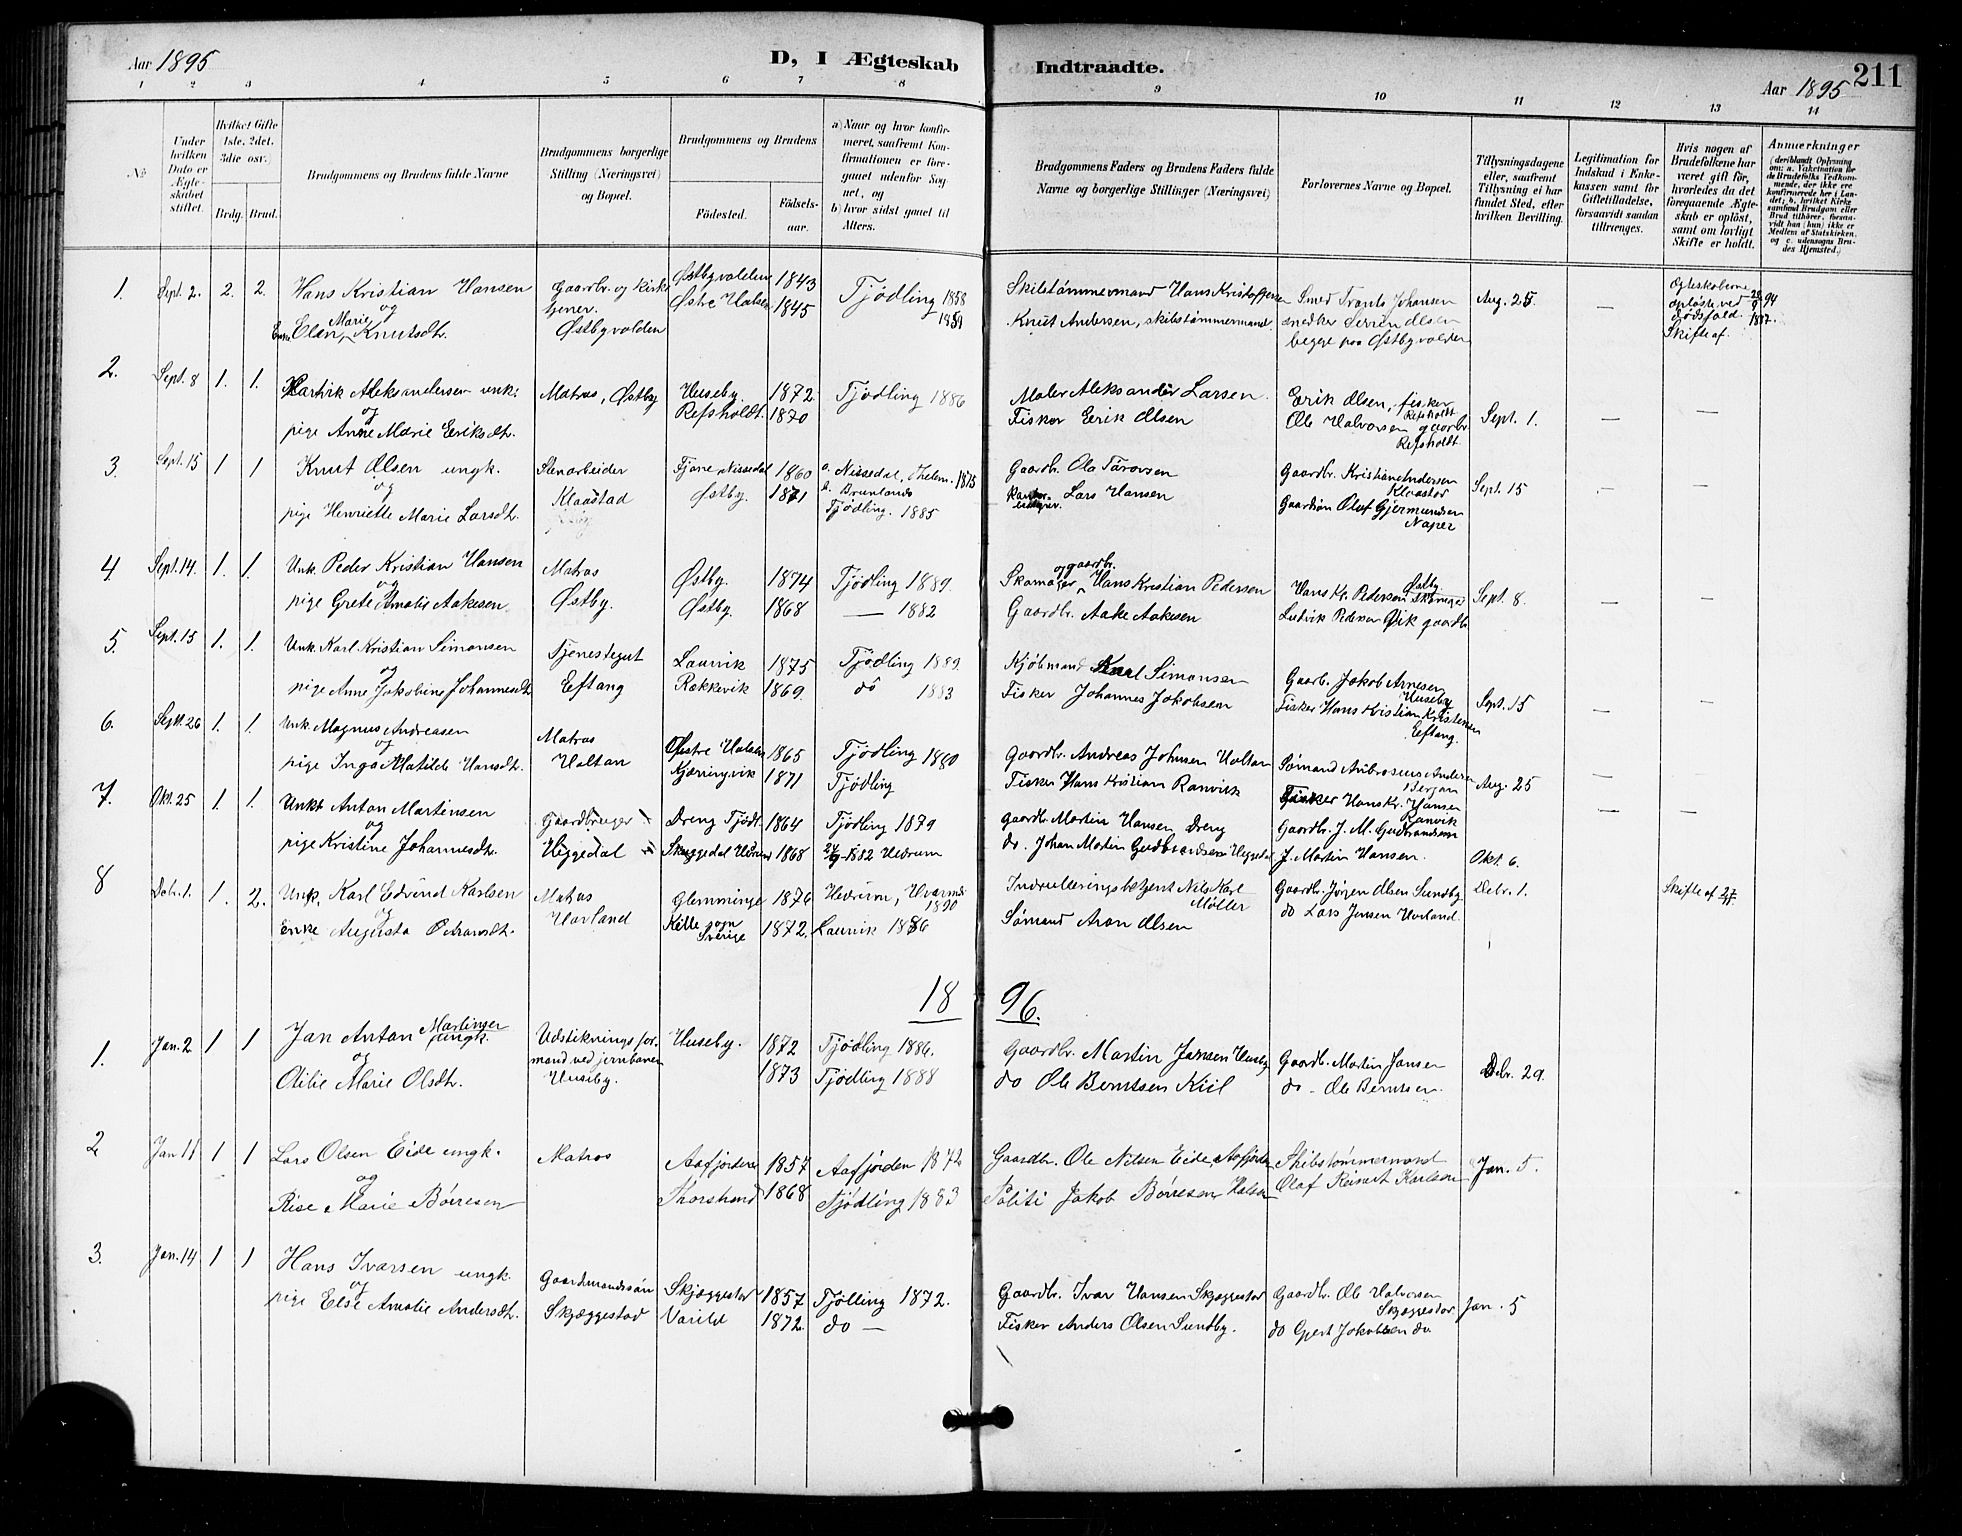 Aar 1895
D, I Ægteskab
Indtraadte.
Aar 1895
211
1 2 3 4 5 6 7 8 9 10 11 12 13 14
No
Under hvilken Dato er Ægteskabet stiftet.
Hvilket Gifte (1ste, 2det, 3die osv.)
Brdg. Brud.
Brudgommens og Brudens fulde Navne
Brudgommens borgerlige Stilling (Næringsvei) og Bopæl.
Brudgommens og Brudens
Födested.
Födselsaar.
a) Naar og hvor konfirmeret, saafremt Konfirmationen er foregaaet udenför Sognet, og
b) hvor sidst gaaet til Alters.
Brudgommens Faders og Brudens Faders fulde Navne og borgerlige Stillinger (Næringsvei)
Forlovernes Navne og Bopæl.
Tillysningsdagene eller, saafremt Tillysning ei har fundet Sted, efter hvilken Bevilling.
Legitimation for Indskud i Enkekassen samt for Giftetilladelse, forsaavidt saadan tiltrænges.
Hvis nogen af Brudefolkene har været gift för, hvorledes da det foregaaende Ægteskab er oplöst, samt om lovligt Skifte er holdt.
Anmerkninger
1. Sept. 2. 2. 2. Hans Kristian Hansen
og
Enke Elen Marie Knutsdt.
Gaardbr. og Kirketjener.
Østbyvolden
Østbyvolden 1843
Østre Halsen 1845
Tjødling 1858
1859
Skibstömmermand Hans Kristoffersen
Knut Andersen, skibstømmermand.
Smed Johansen
snedker Sørren Olsen
begge paa Østbyvolden
Aug. 25
—
Ægteskaberne
opløste ved
dødsfald.
Skifte af.
2. Sept. 8 1. 1. Aleksandersen unk.
og
pige Anne Marie Eriksdt.
Matros, Østby
Huseby. 1872.
Refsholdt. 1870
Tjødling 1886
Maler Aleksander Larsen
Fisker Erik Olsen
Erik Olsen, fisker
Refsholdt
Ole Halvorsen gaardbr.
Refsholdt
Sept. 1.
— —
3. Sept. 15 1 1 Knut Olsen ungk.
og
pige Henriette Marie Larsdt.
Stenarbeider
Klaastad
Tjone, Nissedal 1860
Østby. 1871
a. Nissedal, Thelem. 1875
b. Brunlands
Tjødling. 1885
Gaardbr. Ole Tarovsen
Lars Hansen
Gaardbr. Kristian Andersen
Klaastad
Gaardsön Oluf Gjermundsen
Naper
Sept. 15
— —
4 Sept. 14. 1. 1. Unk. Peder Kristian Hansen
og
pige Grete Amalie Aakesen
Matros
Østby.
Østby. 1874
Østby. 1868
Tjødling 1889.
— 1882
Skomager og gaardbr. Hans Kristian Pedersen
Gaardbr. Aake Aakesen
Hans Kr. Pedersen Østby
skomager
Ludvik Pedersen gaardbr.
Sept. 8.
— —
5. Sept. 15 1. 1. Unk. Karl Kristian Simonsen
og
pige Anne Jakobine Johannesdt.
Tjenestegut
Eftang
Laurvik 1875
Rækkevik 1869.
Tjødling 1889.
do 1883
Kjöbmand Karl Simonsen
Fisker Johannes Jakobsen
Gaarb. Jakob Arnesen
Huseby
Fisker Hans Kristian Kristensen
Eftang.
Sept. 15
— —
6. Sept. 26 1. 1. Unk. Magnus Andreasen
og
pige Inga Matilde Hansdt.
Matros
Haltan
Østre Halsen 1865
Kjæringvik 1871
Tjødling 1880
Tjødling
Gaardbr. Andreas Johnsen Haltan
Fisker Hans Kristian Ranvik
Sømand Ambrosius Andersen
Fisker Hans Kr. Hansen
Ranvik
Aug. 25
— —
7. Okt. 25 1. 1. Unkt Anton Martinsen
og
pige Kristine Johannesdt.
Gaardbruger
Heggedal
Dreng Tjødl. 1864
Skuggedal Hedrum 1868
Tjödling 1879
1882 Hedrum
gaardbr. Martin Hansen Dreng
do. Johan Martin Gudbrandsen Heggedal
Gaardbr. J. M. Gudbrandsen
J. Martin Hansen.
Okt 6.
— —
8 Debr. 1. 1. 2. Unk. Karl Edvind Karlsen
og
enke Augusta
Matros
Harland
Glemminge 1876
sogn Sverige 1872.
Hedrum, Hvarnes
1890
Laurvik 1886
Indrulleringsbetjent Nils Karl
Møller
Sømand Aron Olsen
Gaardbr. Jørgen Olsen Sundby
do Lars Jensen Harland.
Debr. 1.
Skifte af
18 96.
1. Jan. 2 1 1 Jan Anton Martinsen
ungk.
og
Otilie Marie Olsdt.
Udstikningsformand ved jernbanen
Huseby.
Huseby. 1872
1873
Tjødling 1886.
Tjødling 1888
Gaardbr. Martin Jansen Huseby
do Ole Berntsen Kiil
Gaardb. Martin Jansen
do - Ole Berntsen.
Debr. 29.
2 Jan 11 1 1 Lars Olsen Eide ungk.
og
Rise Marie Börresen
Matros
Aafjorden 1857
Thorstrand 1868
Aafjörden 1872
Tjödling 1883
Gaardbr. Ole Nilsen Eide, Aafjorden
Politi Jakob Börresen Halsen
Skibstømmermand
Olaf Reinart Karlsen
Jan. 5.
3. Jan. 14 1 1 Hans Ivarsen ungk.
og
pige Else Amalie Andersdt.
Gaardmandssön
Skjæggestad
Skjæggestad 1857
Varild 1872.
Tjølling 1872.
do —
Gaardbr. Ivar Hansen Skjæggestad
Fisker Anders Olsen Sundby.
Gaardbr. Ole Halvorsen
Skjæggestad
do Gjert Jakobsen do.
Jan. 5